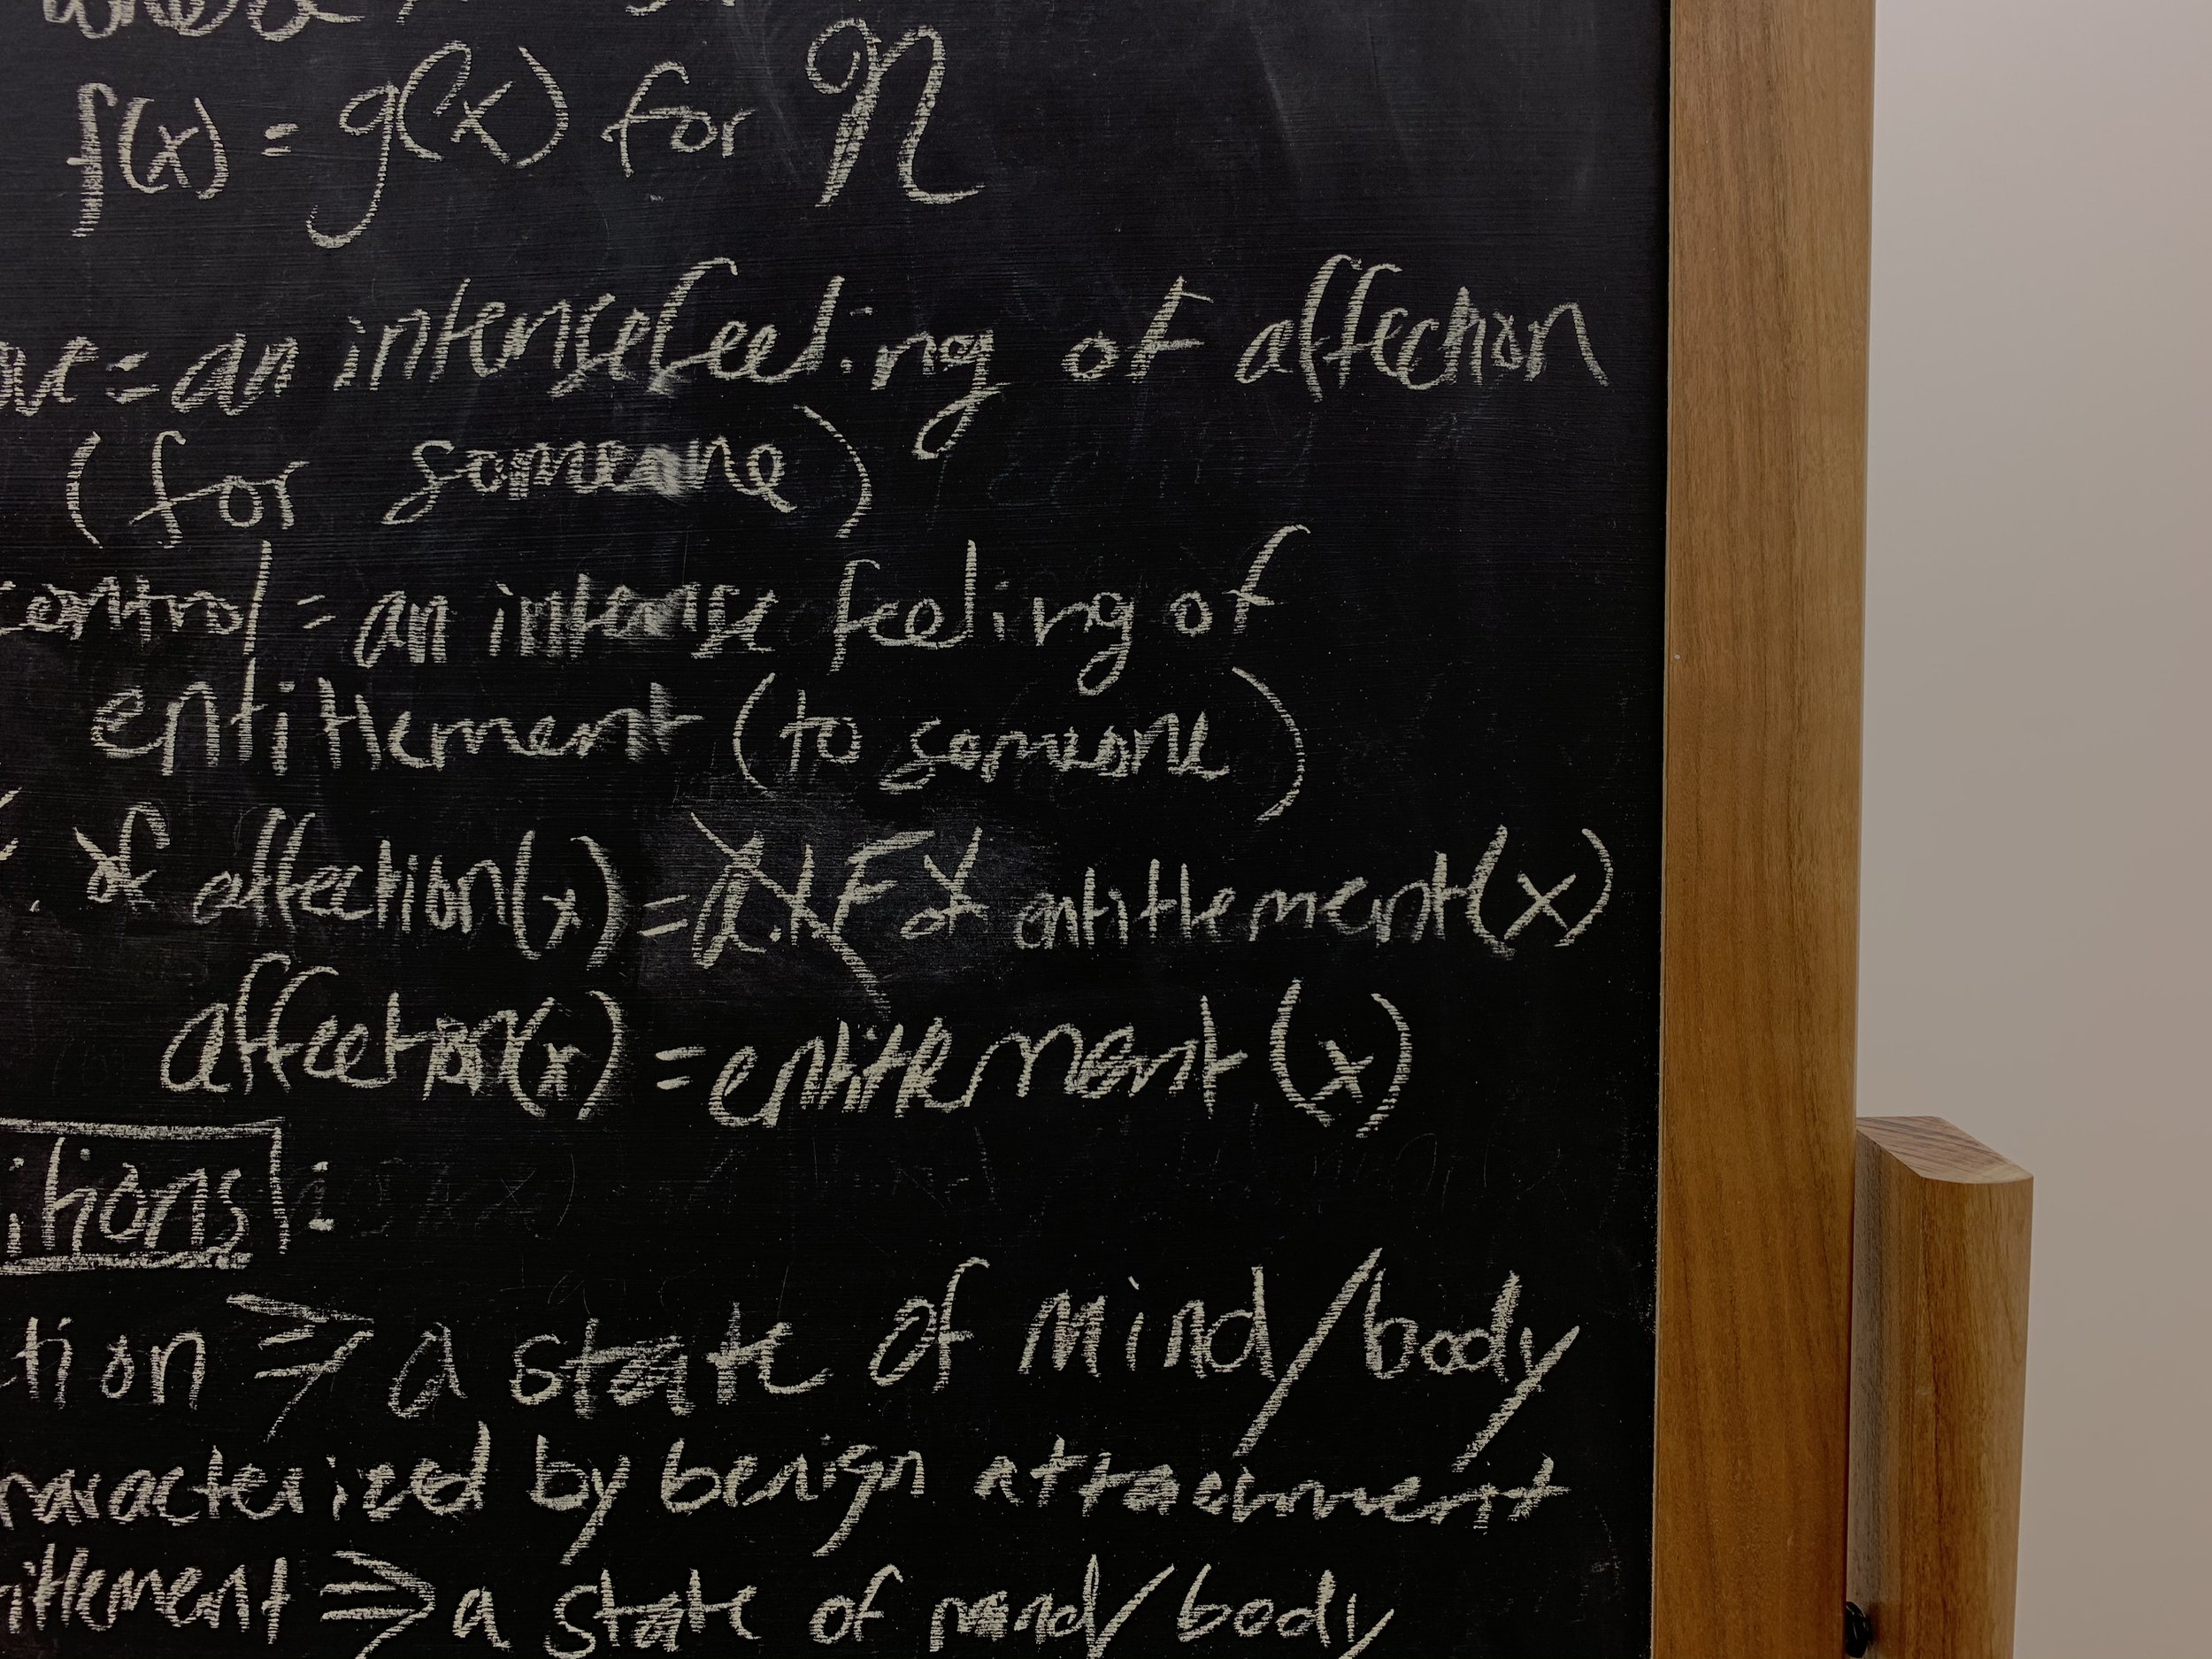 where
f(x) = g(x) for n
= an intense feeling of affection
(for someone)
control = an intense feeling of
entitlement (to someone)
of affection(x) = entitlement(x)
affection(x) = entitlement(x)
itions:
tion ⇒ a state of mind/body
haracterized by benign attachment
titlement ⇒ a state of mind/body